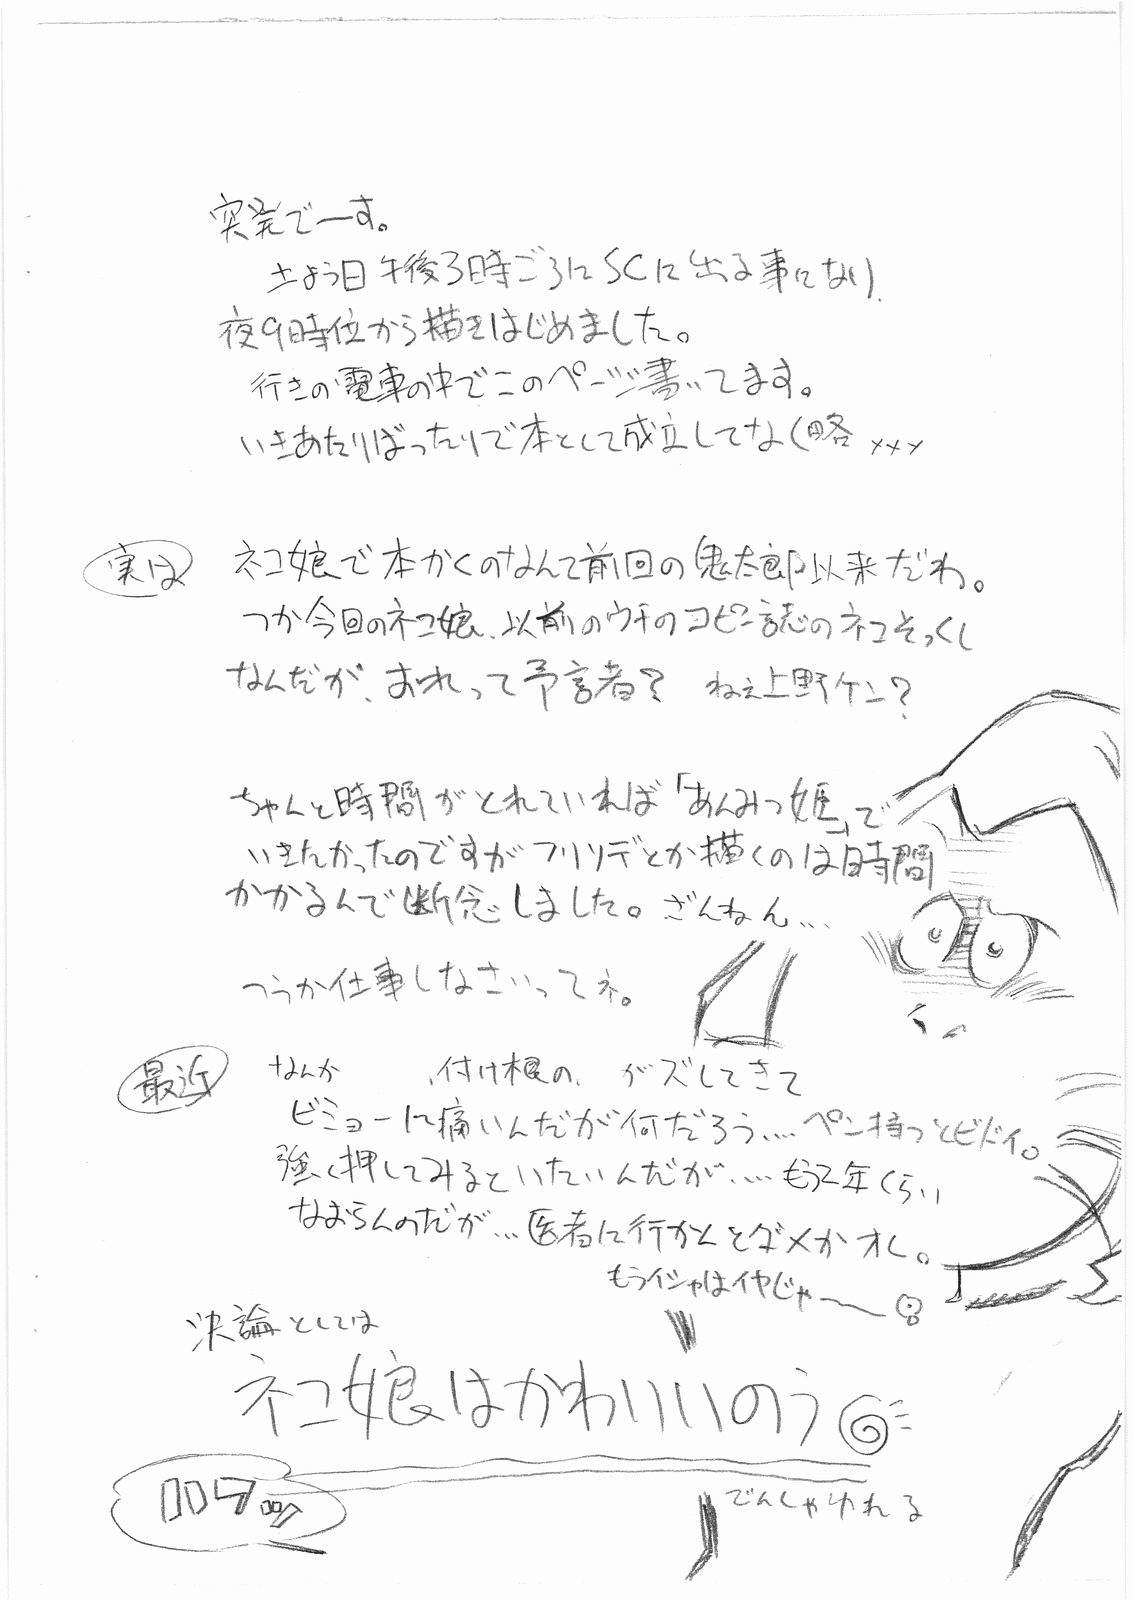 突発でーす。
土よう日午後3時ごろにSCに出る事になり、
夜9時位から描きはじめました。
行きの電車の中でこのページ書いてます。
いきあたりばったりで本として成立してな(略 xxx
実は
ネコ娘で本かくのなんて前回の鬼太郎以来だわ。
つか今回のネコ娘、以前のウチのコピー誌のネコそっくし
なんだが、おれって予言者? ねえ上野ケン?
ちゃんと時間がとれていれば「あんみつ姫」で
いきたかったのですがフリソデとか描くのは時間
かかるんで断念しました。ざんねん…
つうか仕事しなさいってネ。
最近
なんか 付け根の、がズしてきて
ビミョーに痛いんだが何だろう…. ペン持つとヒドイ。
強く押してみるといたいんだが….. もう2年くらい
なおらんのだが…医者に行かんとダメかオレ。
もうイシャはイヤじゃ〜
決論としては
ネコ娘はかわいいのう
でんしゃゆれる